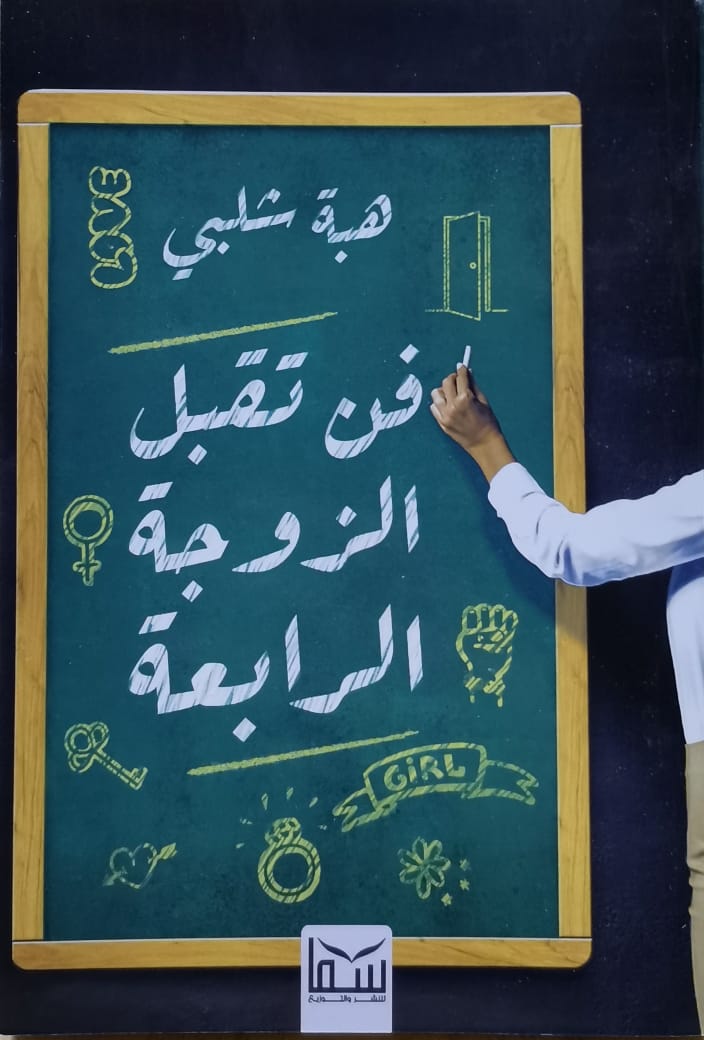 هبة شلبي
LOVE
فن تقبل
الزوجة
الرابعة
GIRL
سما
للنشر والتوزيع